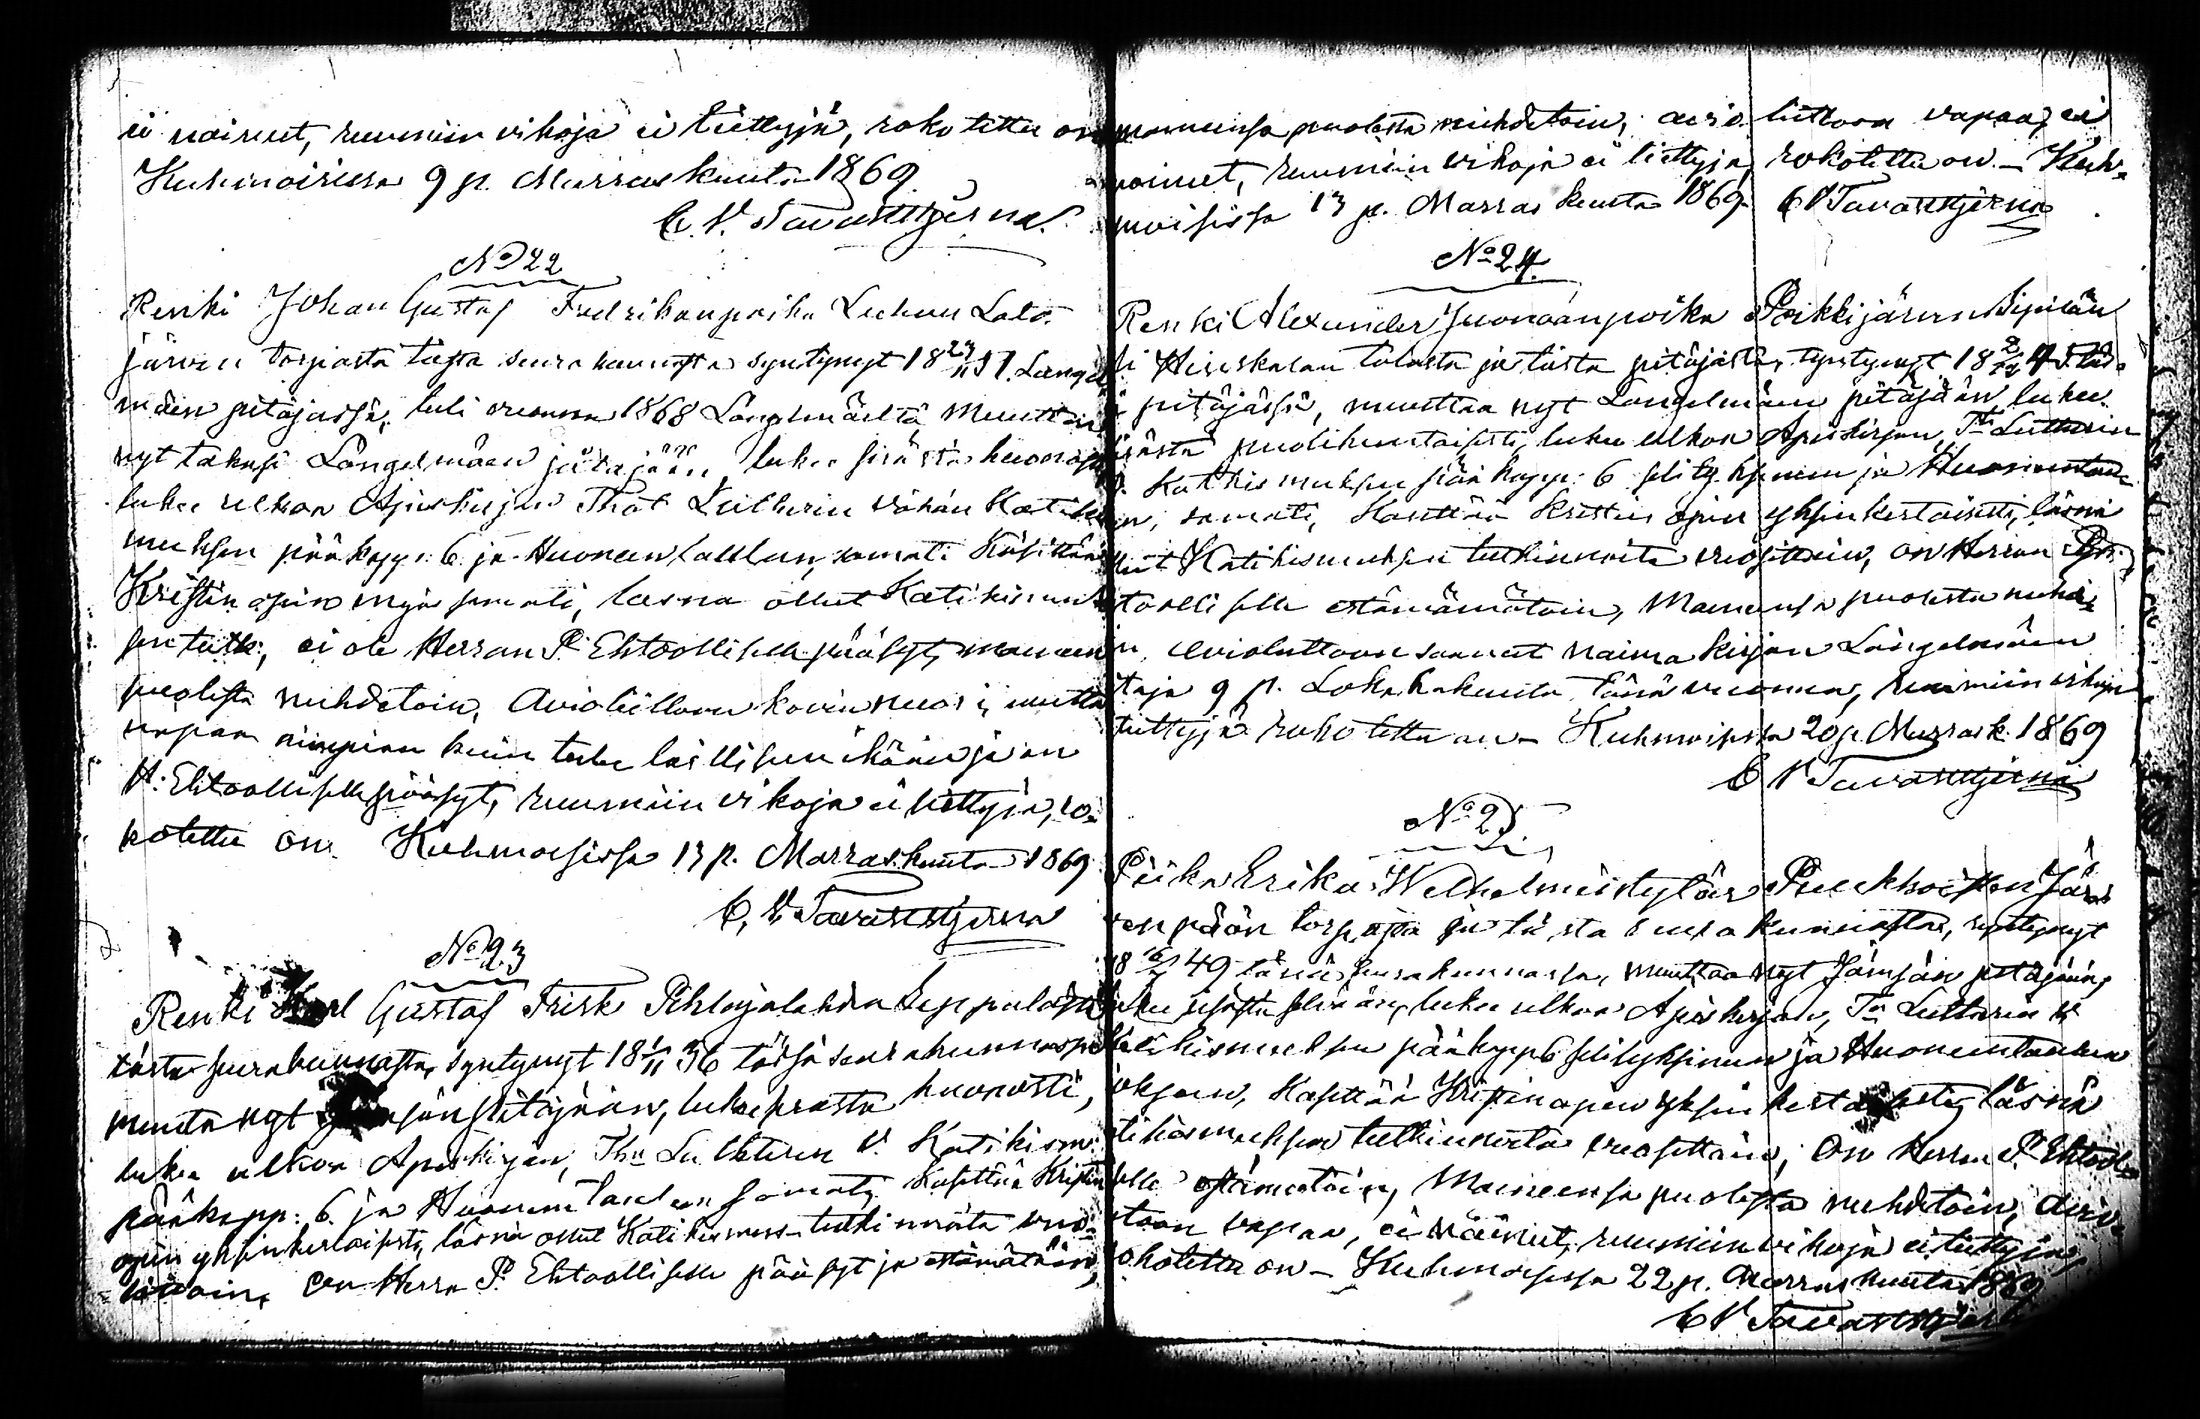 ei nainut, ruumiin vikoja ei tiettyjä, rokotettu on
Kuhmoisissa 9 p. Marraskuuta 1869.
C. V. Tavaststjerna.
No 22
Renki Johan Gustaf Fredrikanpoika Leehun Lato-
järven torpasta tästä seurakunnasta syntynyt 18 23/11 51. Längel
mäen pitäjässä, tuli vuonna 1868 Längelmäeltä Muuttaa
nyt takasi Längelmäen pitäjään lukee sisästä huonosti
lukee ulkoa Apiskirjan Thot Lutherin vähän Katikis
muksen pääkapp: 6 ja Huoneen taulun, samati Käsittää
Kristin opin myös samati, läsnä ollut Katikismuk
sen tutk:, ei ole Herran P. Ehtoollisella pääsyt, maineen
puolesta nuhdetoin, Avioliittoon kovin nuori, mutta
vapaa niinpian kuin tulee laillisen ikään ja on
H: Ehtoollisella pääsyt, ruumiin vikoja ei tiettyjä, ro-
kotettu on. Kuhmoisissa 13 p. Marraskuuta 1869
C. V. Tavaststjerna
No 23
Renki Karl Gustaf Frisk Pihlajalahden Seppälästä
tästä seurakunnasta, syntynyt 18 1/11 36 tässä seurakunnassa
muuta nyt Jämsän pitäjään, lukee sisästä huonosti,
lukee ulkoa Apiskirjan, Thn Lutherin V. Katikism:
pääkapp: 6. ja Huoneen taulun samati, Käsittää Kristin
opin yksinkertaisesti, läsnä ollut Katikismus-tutkinnoita vuo-
sittain, on Herra P. Ehtoollisella pääsyt ja estämätöin,
maineensa puolesta nuhdetoin, avio liittoon vapaa, ei
nainut, ruumiin vikoja ei tiettyja, rokotettu on. – Kuh-
moisissa 13 p. Marraskuuta 1869. C V Tavaststjerna
No 24.
Renki Alexander Juonaanpoika Poikkijärven Sipilän
li Hiiskalan talosta ja tästä pitäjästä, syntynyt 18 täs-
ä pitäjässä, muuttaa nyt Längelmäen pitäjään lukee
sisästä puolihuntaisesti, lukee ulkoa Apiskirjan, Tn Lutherin
V. Katkismuksen pääkapp: 6 selityksineen ja Huoneentau
un, samati, Käsittää Kristin opin yksinkertaisesti, läsnä
llut Katikismuksen tutkinnoita vuosittain, on Herran P.
toollisella estämämätoin, Maineensa puolesta nuhde
n, avioliittoon saanut naima kirjan Längelmäen
taja 9 p. Lokakakuuta tänä vuonna, ruumiin vikoja
tiettyjä rokotettu on – Kuhmoisissa 20 p. Marrask. 1869
C V Tavaststjerna
No 25.
Piika Erika Wilhelmiistytär Puukkoisten Jär-
venpään torpasta ja tästä seurakunnasta, syntynyt
18 16/7 49 tässä seurakunnassa, muuttaa nyt Jämsän pitäjään,
lukee sisästä selvään, lukee ulkoa Apiskirjan, Tn Lutherin V
Katikismuksen pääkapp 6 selityksineen ja Huoneentaulun
okseen, Käsittää Kristin opin yksinkertaisesti, läsnä
tikismuksen tutkinnoita vuosittain, On Herra P. Ehtool-
sella estämätöin, Maineensa puolesta nuhdetoin, Avio-
toon vapaa, ei nainut, ruumiin vikoja ei tiettyjä,
rokotettu on – Kuhmoisissa 22 p. Marraskuuta 1869
C V Tavaststjerna